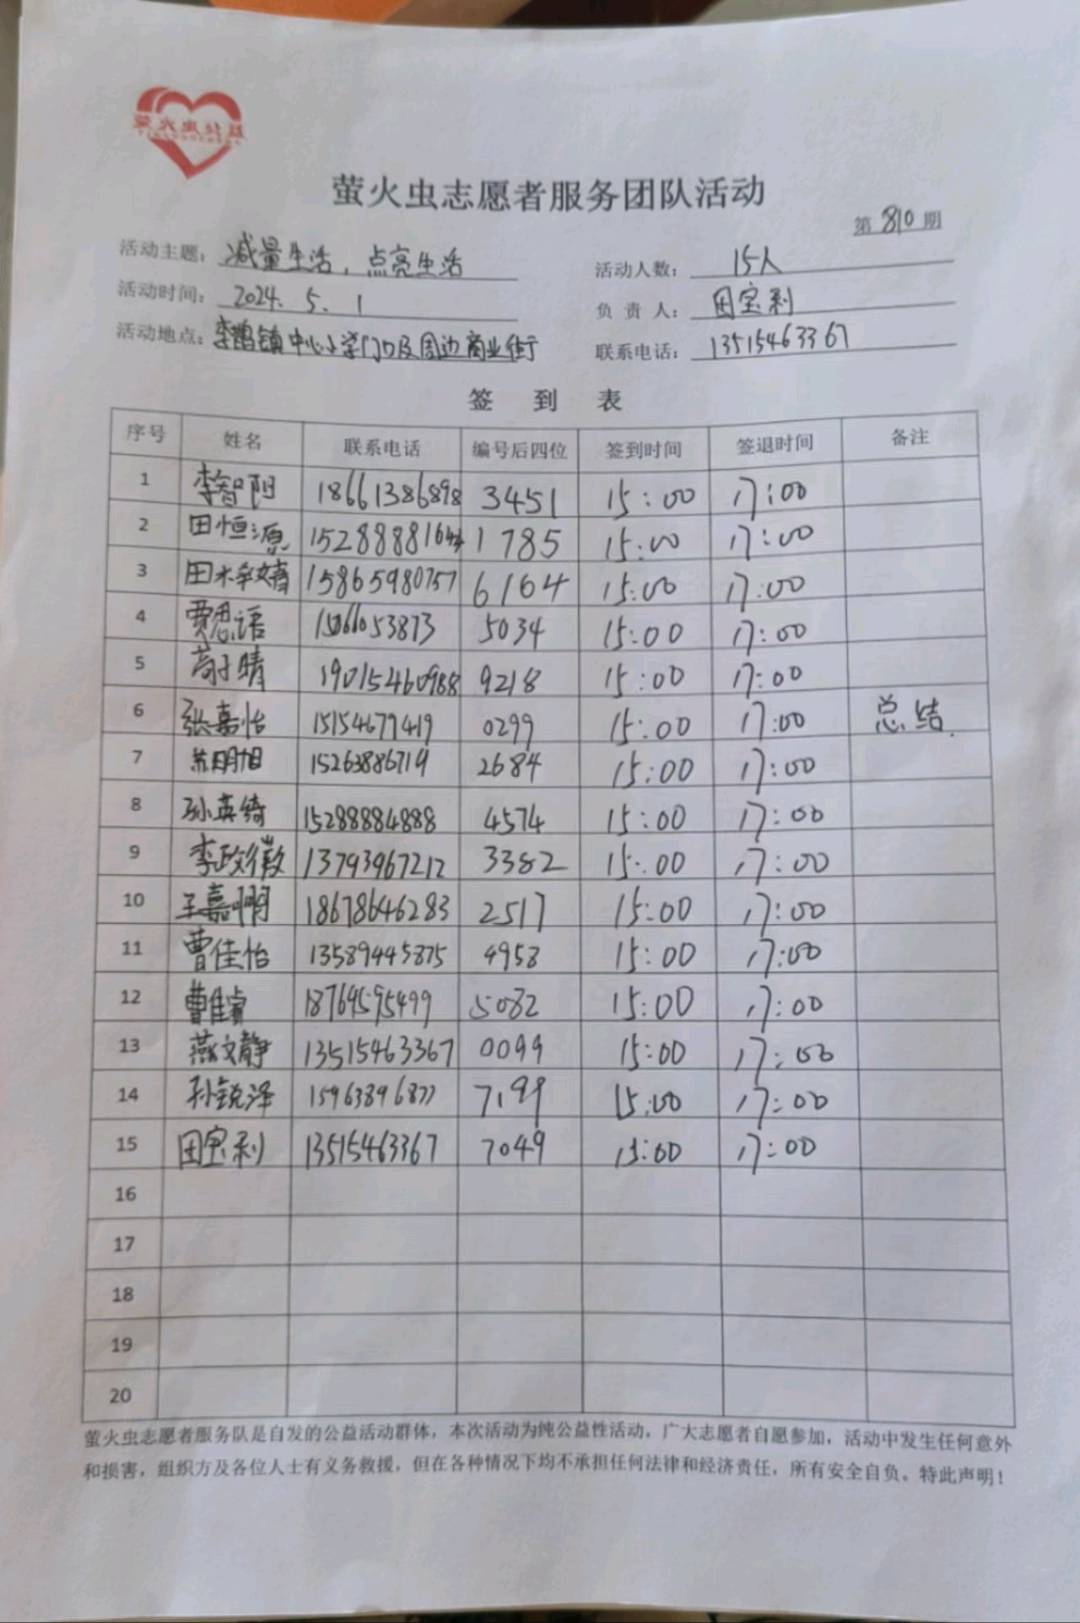 萤火虫志愿者服务团队活动
第 810 期
活动主题： 减量生活，点亮生活 活动人数： 15人
活动时间： 2024. 5. 1 负 责 人： 田宝利
活动地点： 李鹊镇中心小学门口及周边商业街 联系电话： 13515463367
签 到 表
序号 姓名 联系电话 编号后四位 签到时间 签退时间 备注
1 李智阳 18661386898 3451 15:00 17:00
2 田恒源 1528888164 1785 15:00 17:00
3 田 15865980757 6164 15:00 17:00
4 贾思语 15066053873 5034 15:00 17:00
5 苟子晴 19015460988 9218 15:00 17:00
6 张嘉怡 15154677419 0299 15:00 17:00 总结.
7 明旭 15263886719 2684 15:00 17:00
8 孙英绮 15288884888 4574 15:00 17:00
9 李政徽 13793967212 3382 15:00 17:00
10 王嘉 18678646283 2517 15:00 17:00
11 曹佳怡 13589445875 4958 15:00 17:00
12 曹佳睿 18764595499 5082 15:00 17:00
13 燕文静 13515463367 0099 15:00 17:00
14 孙锐泽 15963896877 7199 15:00 17:00
15 田宝利 13515463367 7049 15:00 17:00
16
17
18
19
20
萤火虫志愿者服务队是自发的公益活动群体，本次活动为纯公益性活动，广大志愿者自愿参加，活动中发生任何意外
和损害，组织方及各位人士有义务救援，但在各种情况下均不承担任何法律和经济责任，所有安全自负。特此声明！